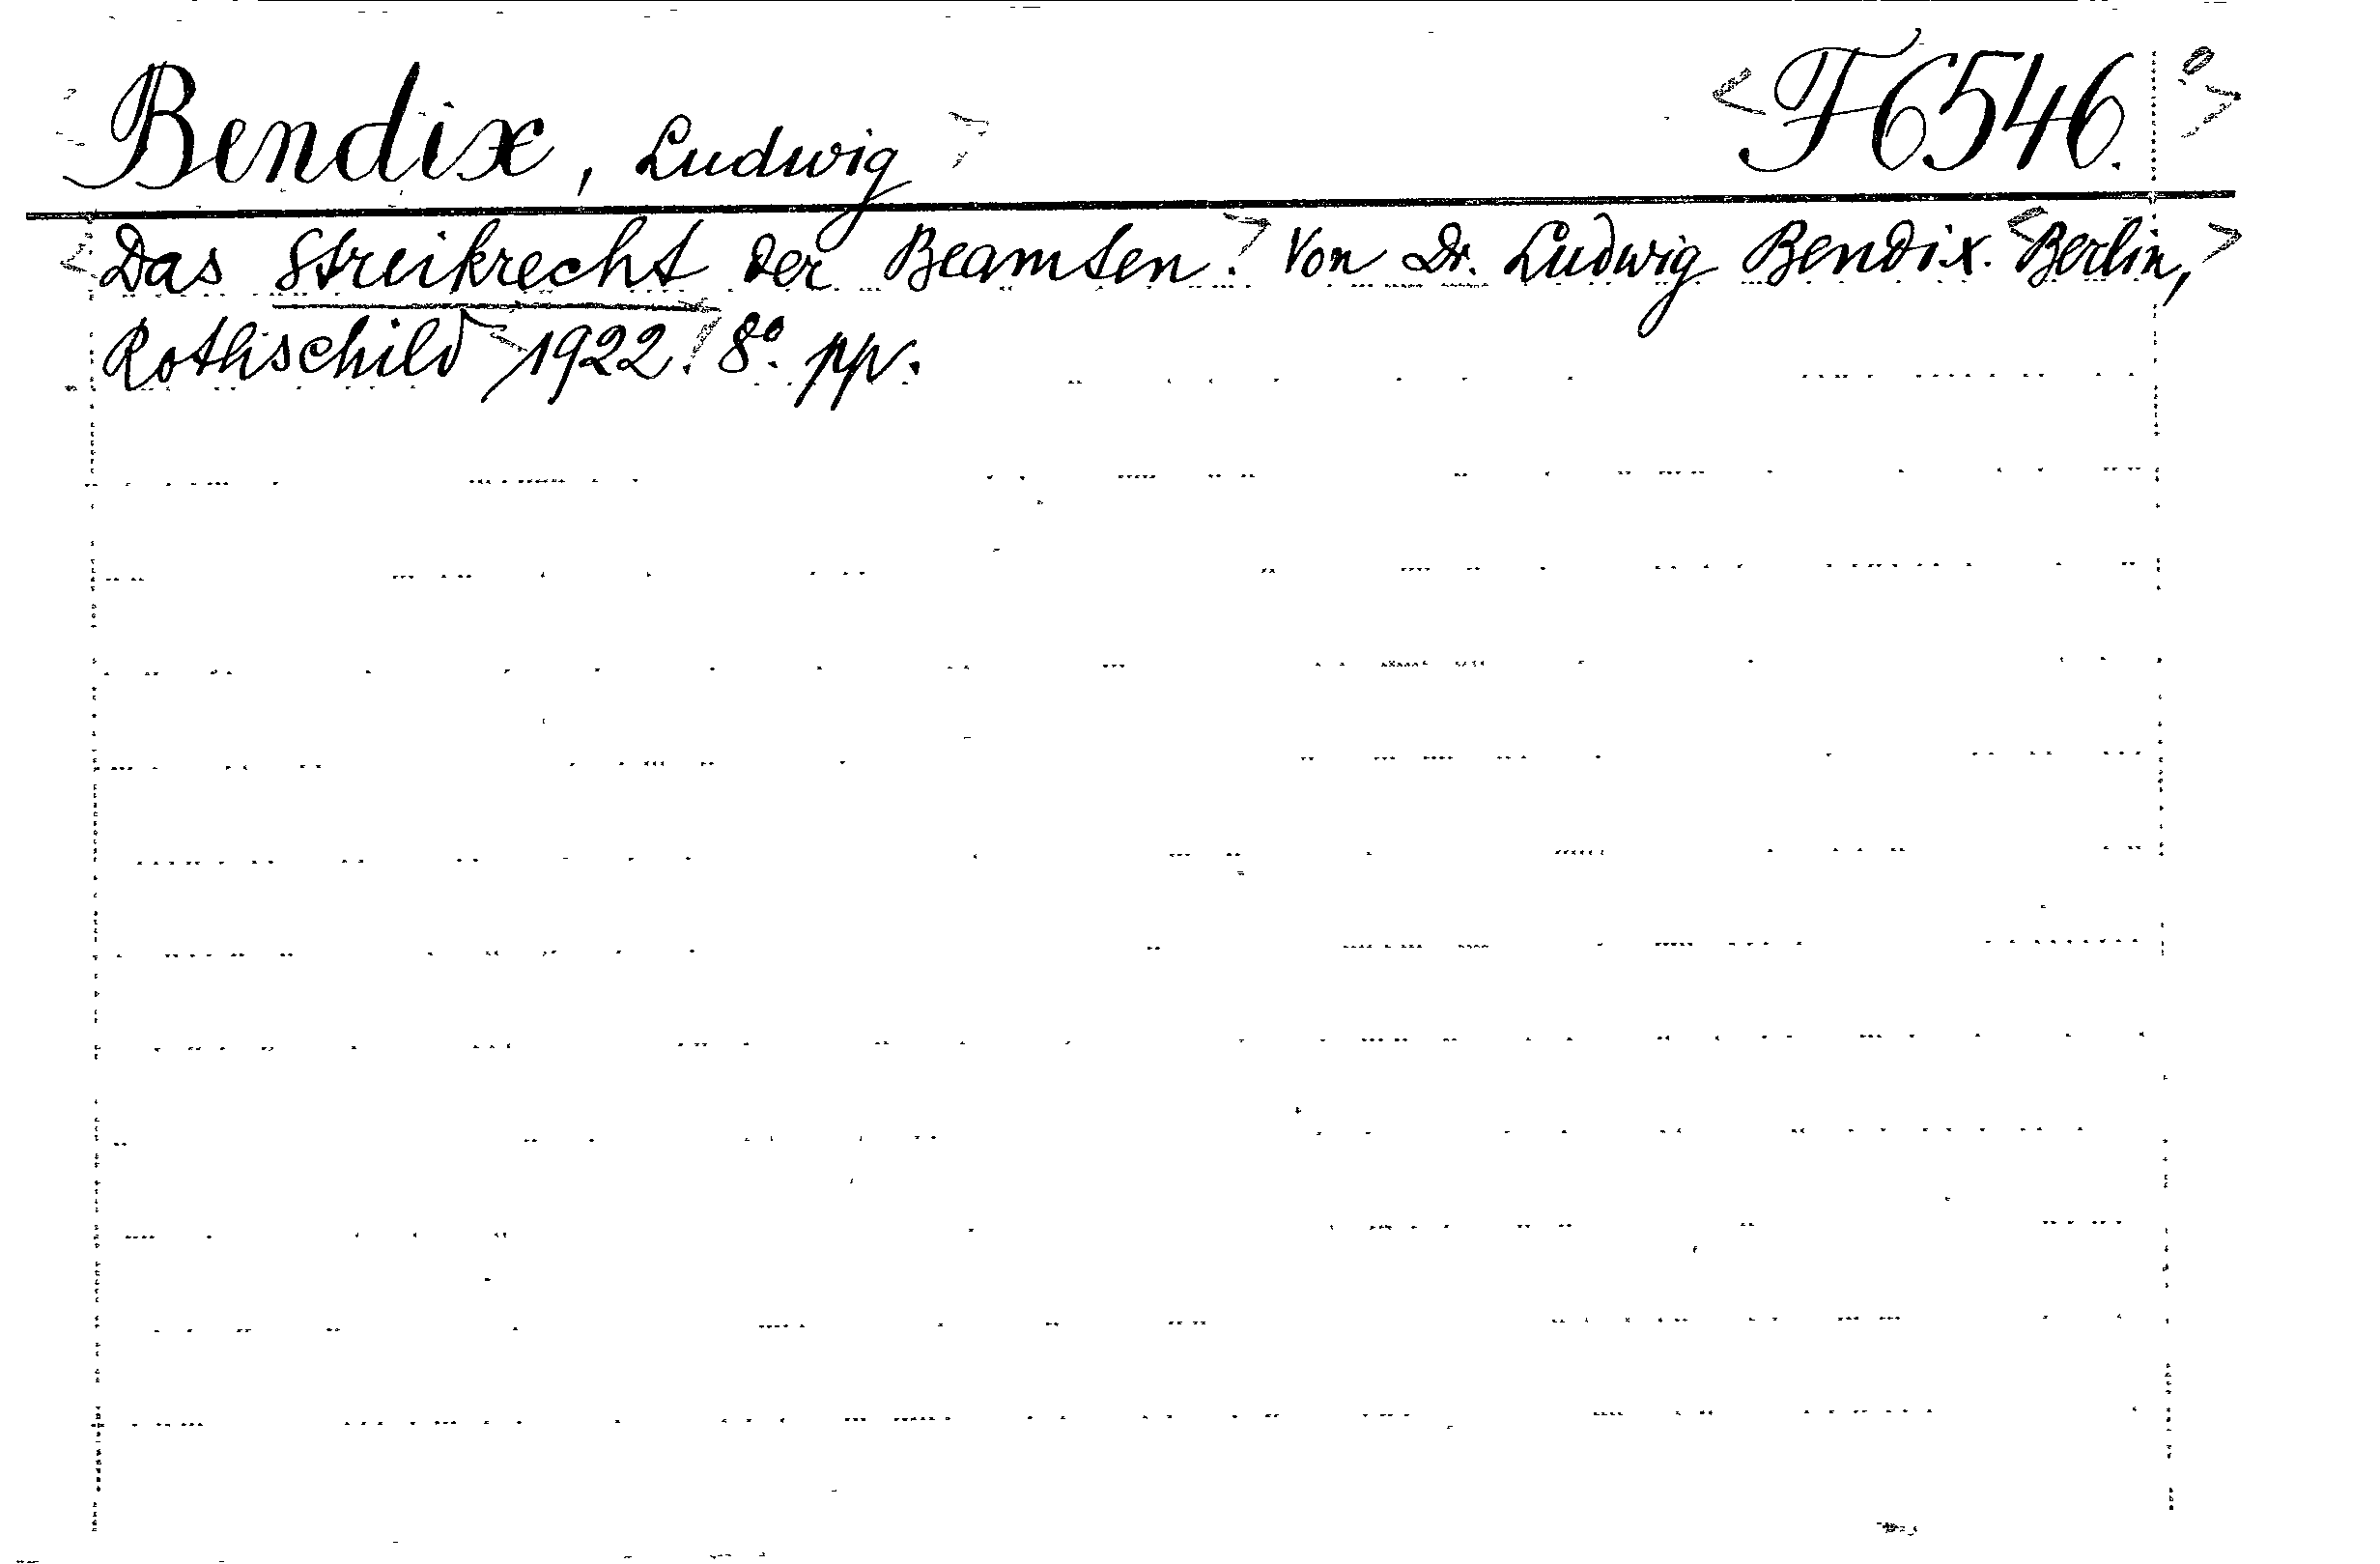 Bendix, Ludwig <F6546.°>
<Das Streikrecht der Beamten.> Von Dr. Ludwig Bendix. <Berlin,>
Rothschild <1922.> 8°. pp.